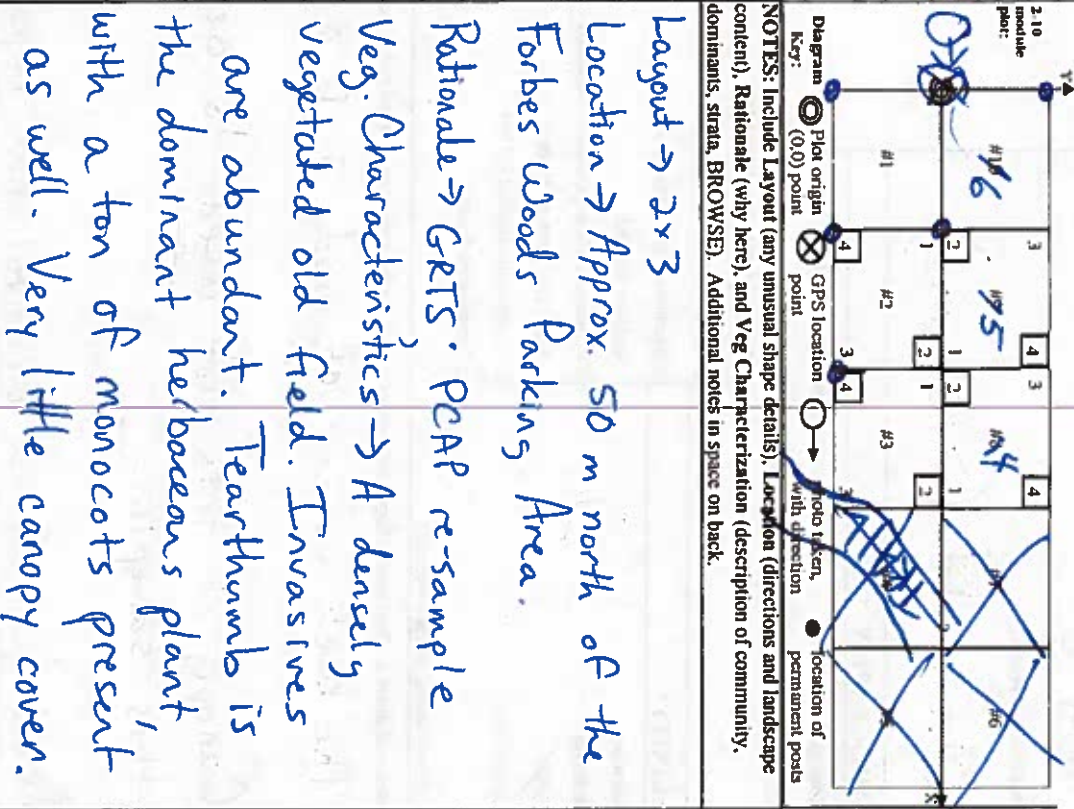 2-10
module
plot:
Y
#16
#95
#4
3
4
3
4
2
1
2
1
#1
1
2
1
2
#2
#3
4
3
4
3
#7
#6
X
Diagram Key: Plot origin (0,0) point GPS location point photo taken, with direction location of permanent posts
NOTES: Include Layout (any unusual shape details), Location (directions and landscape
content), Rationale (why here), and Veg Characterization (description of community,
dominants, strata, BROWSE). Additional notes in space on back.
Layout → 2x3
Location → Approx. 50 m north of the
Forbes Woods Parking Area.
Rationale → GRTS. PCAP re-sample
Veg. Characteristics → A densely
vegetated old field. Invasives
are abundant. Tearthumb is
the dominant herbaceous plant,
with a ton of monocots present
as well. Very little canopy cover.